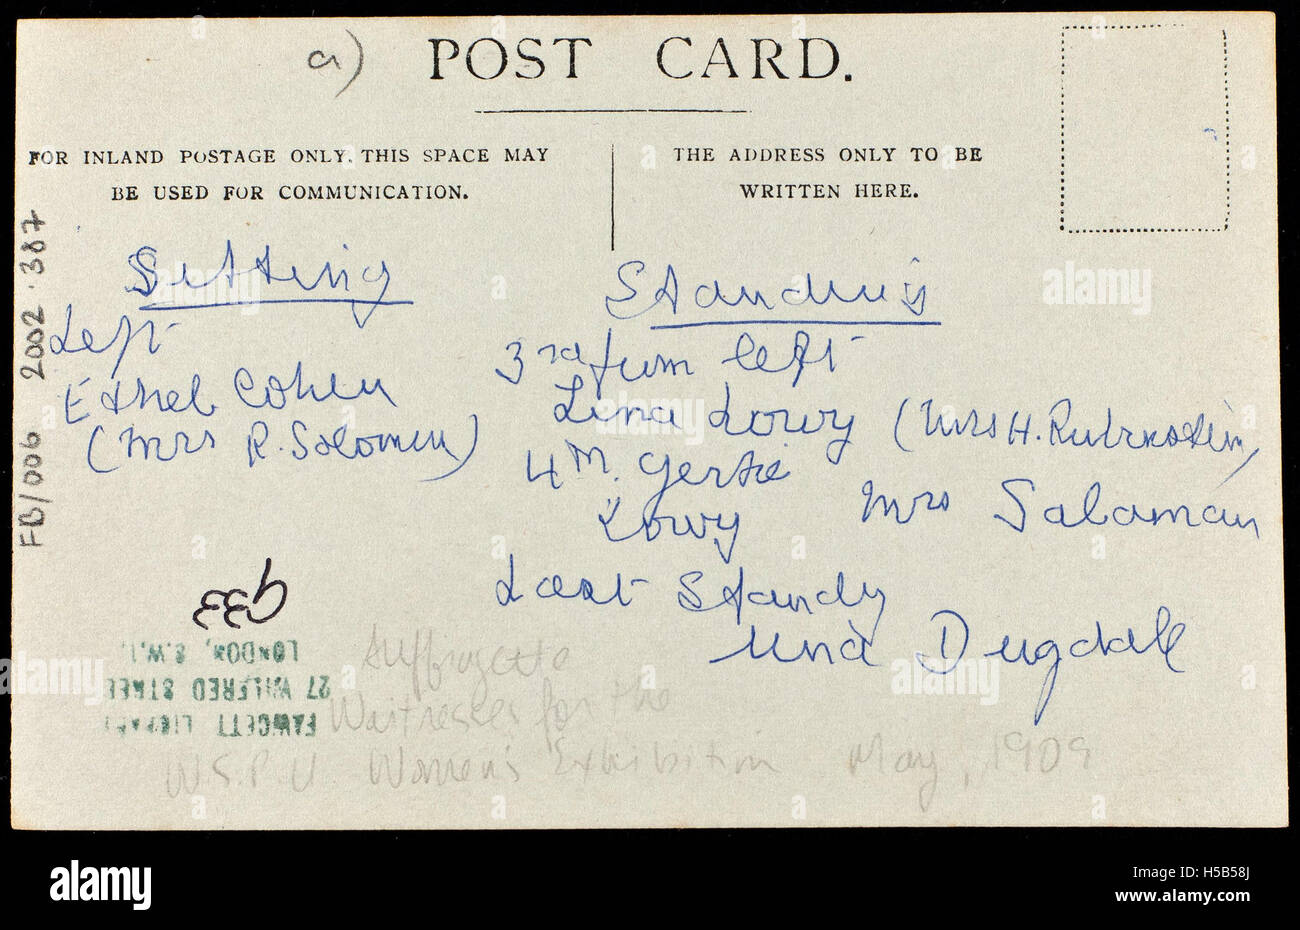 a) POST CARD.
FOR INLAND POSTAGE ONLY. THIS SPACE MAY
BE USED FOR COMMUNICATION.
THE ADDRESS ONLY TO BE
WRITTEN HERE.
FB/006 2002.387
Sitting
Left
Ethel Cohen
(Mrs R. Solomon)
Standing
3rd from left
Lena Lowy (Mrs H. Rubinstein)
4th. Gertie
Lowy Mrs Salaman
Last Standg
Una Dugdale
933
FAWCETT LIBRARY
27 WILFRED STREET
LONDON, S.W.1.
Suffragette
Waitresses for the
W.S.P.U Women's Exhibition May, 1909
alamy
alamy
Image ID: H5B58J
www.alamy.com